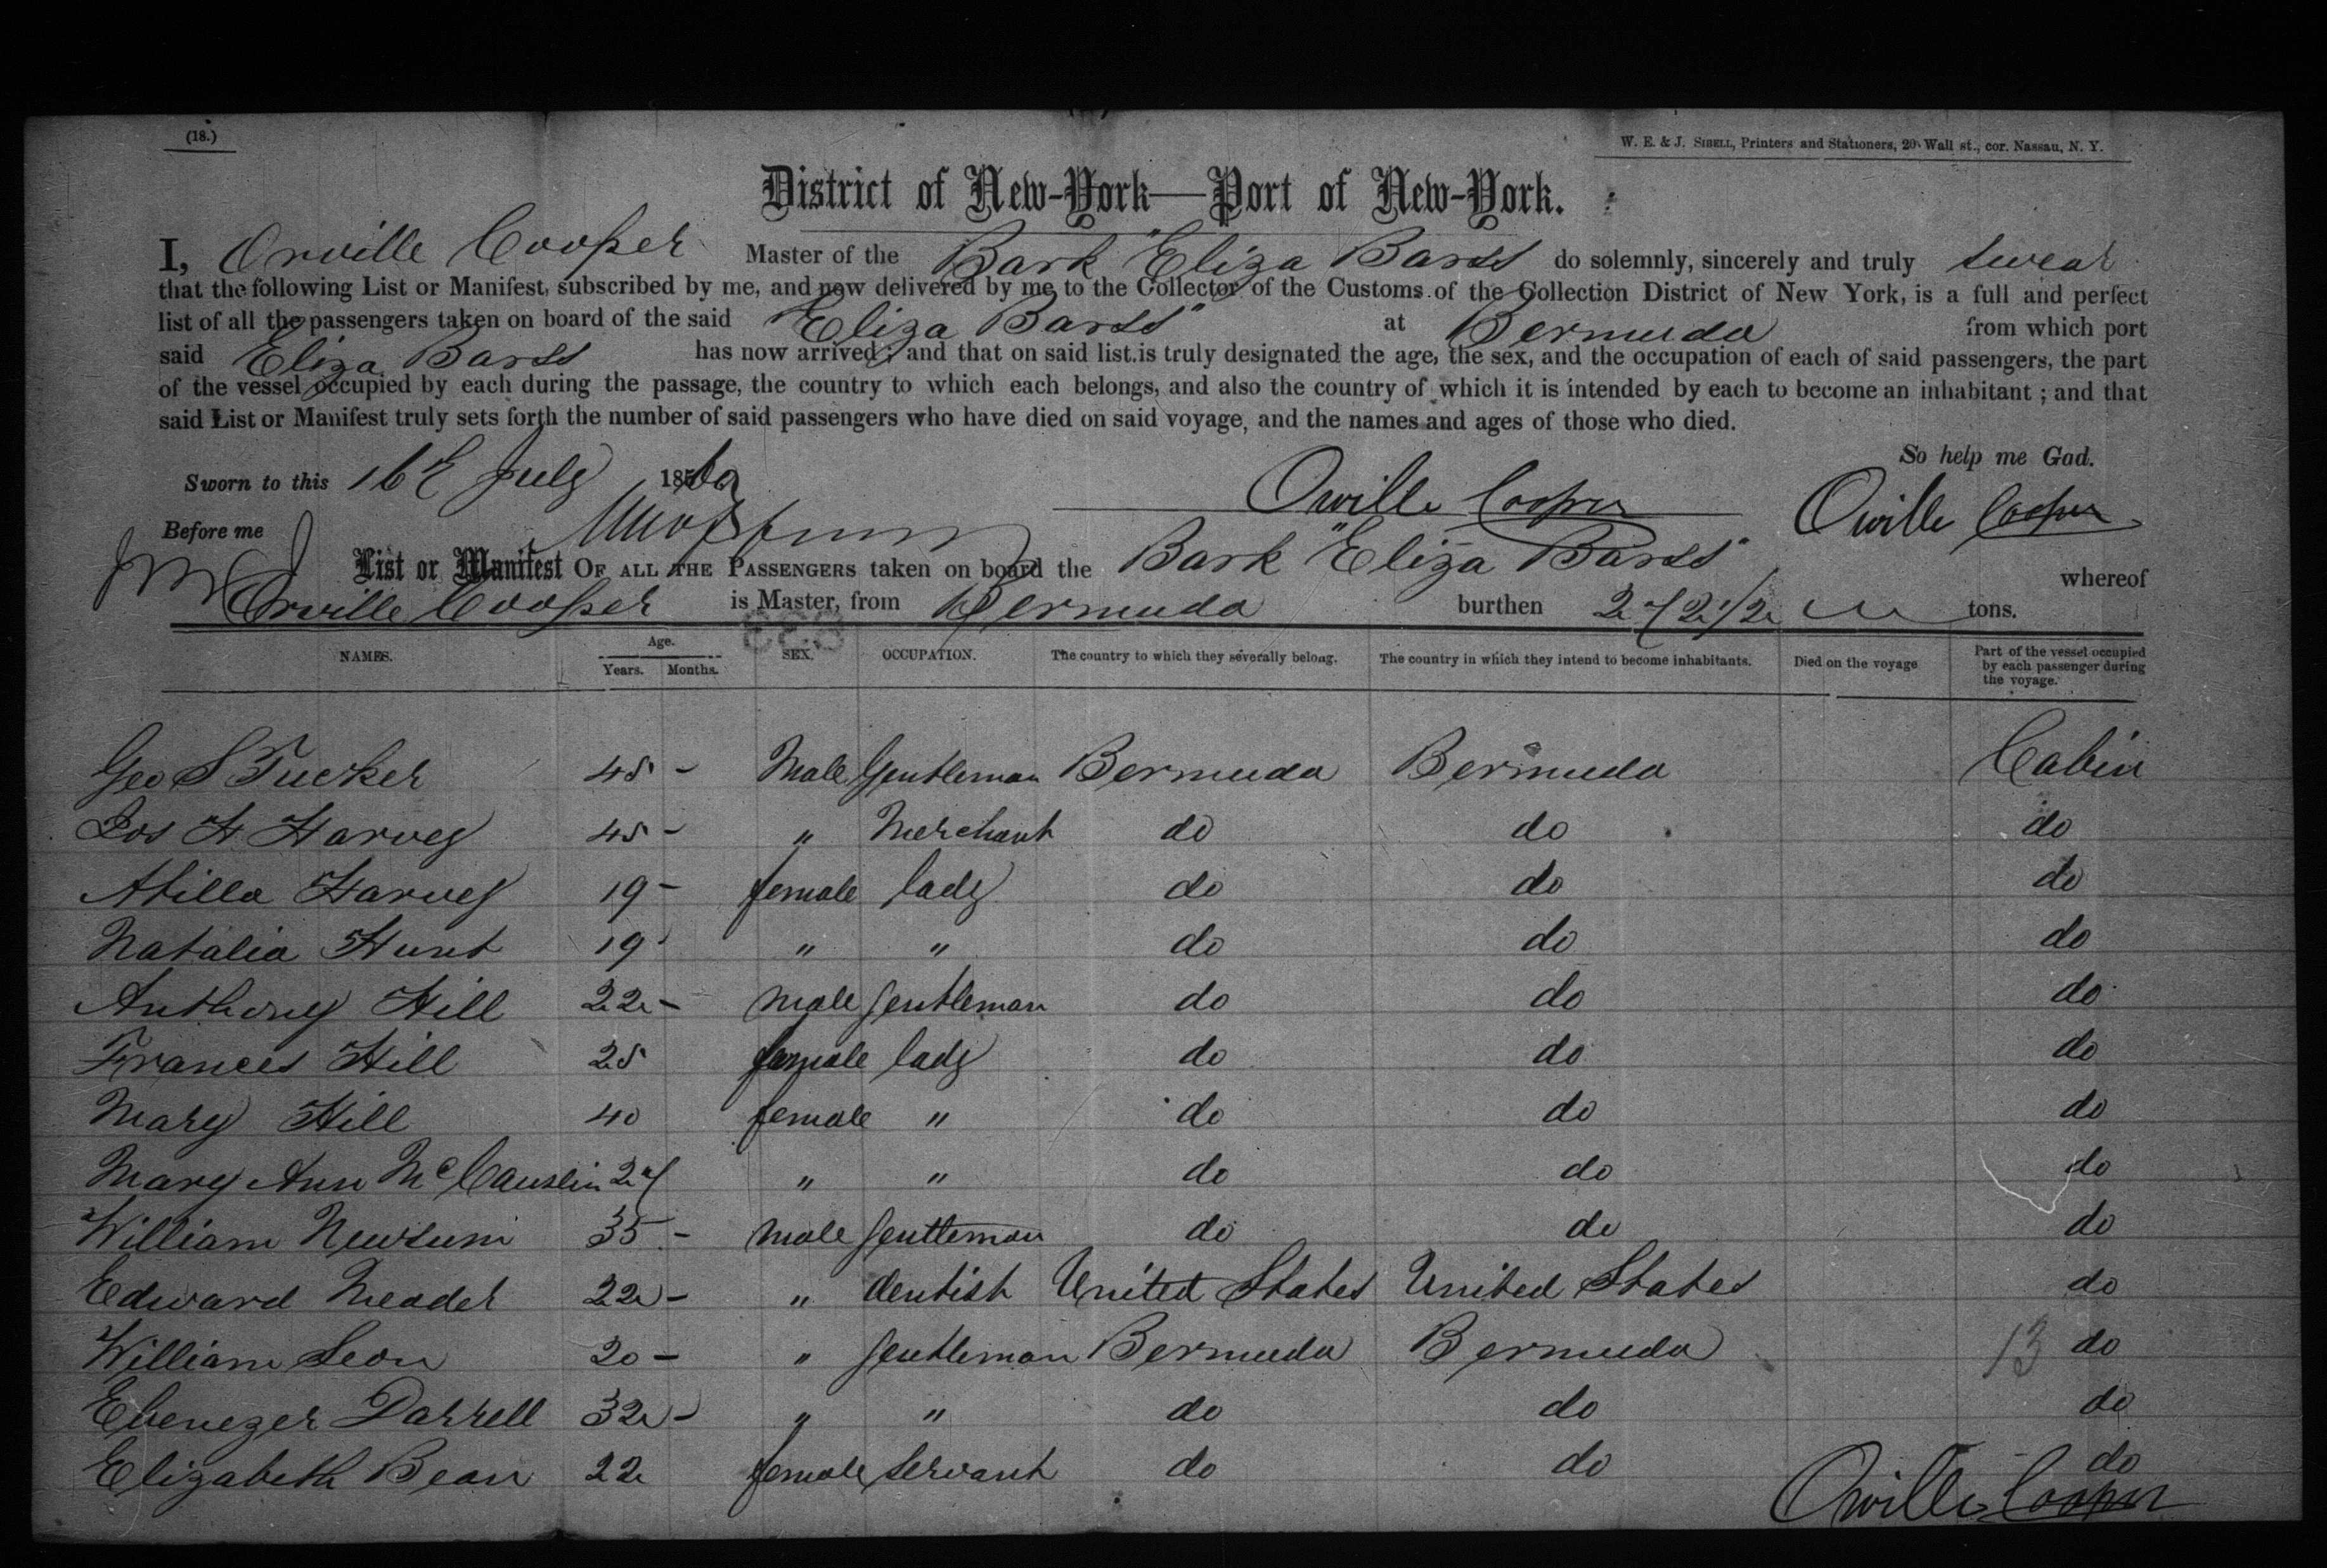 (18.)
W. E. & J. SIBELL, Printers and Stationers, 20 Wall st., cor. Nassau, N. Y.
District of New-York—Port of New-York.
I, Orville Cooper Master of the Bark "Eliza Barss do solemnly, sincerely and truly swear
that the following List or Manifest, subscribed by me, and now delivered by me to the Collector of the Customs of the Collection District of New York, is a full and perfect
list of all the passengers taken on board of the said "Eliza Barss" at Bermuda from which port
said Eliza Barss has now arrived; and that on said list is truly designated the age, the sex, and the occupation of each of said passengers, the part
of the vessel occupied by each during the passage, the country to which each belongs, and also the country of which it is intended by each to become an inhabitant; and that
said List or Manifest truly sets forth the number of said passengers who have died on said voyage, and the names and ages of those who died.
So help me God.
Sworn to this 16th July 1860 Orville Cooper Orville Cooper
Before me
List or Manifest OF ALL THE PASSENGERS taken on board the Bark "Eliza Barss" whereof
Orville Cooper is Master, from Bermuda burthen 272 1/2 tons.
NAMES. Age. Years. Months. SEX. OCCUPATION. The country to which they severally belong. The country in which they intend to become inhabitants. Died on the voyage Part of the vessel occupied by each passenger during the voyage.
Geo S Tucker 45 - Male Gentleman Bermuda Bermuda Cabin
Jos H Harvey 45 - " Merchant do do do
Harvey 19 - female lady do do do
Natalia Hunt 19 " " do do do
Anthony Hill 22 - male gentleman do do do
Frances Hill 25 female lady do do do
Mary Hill 40 female " do do do
Mary Ann McCauslin 27 " " do do do
William Newsum 35 - male gentleman do do do
Edward Meader 22 - " dentist United States United States do
William Seon 20 - " gentleman Bermuda Bermuda 13 do
Ebenezer Darrell 32 - " " do do do
Elizabeth Bean 22 female servant do do do
Orville Cooper